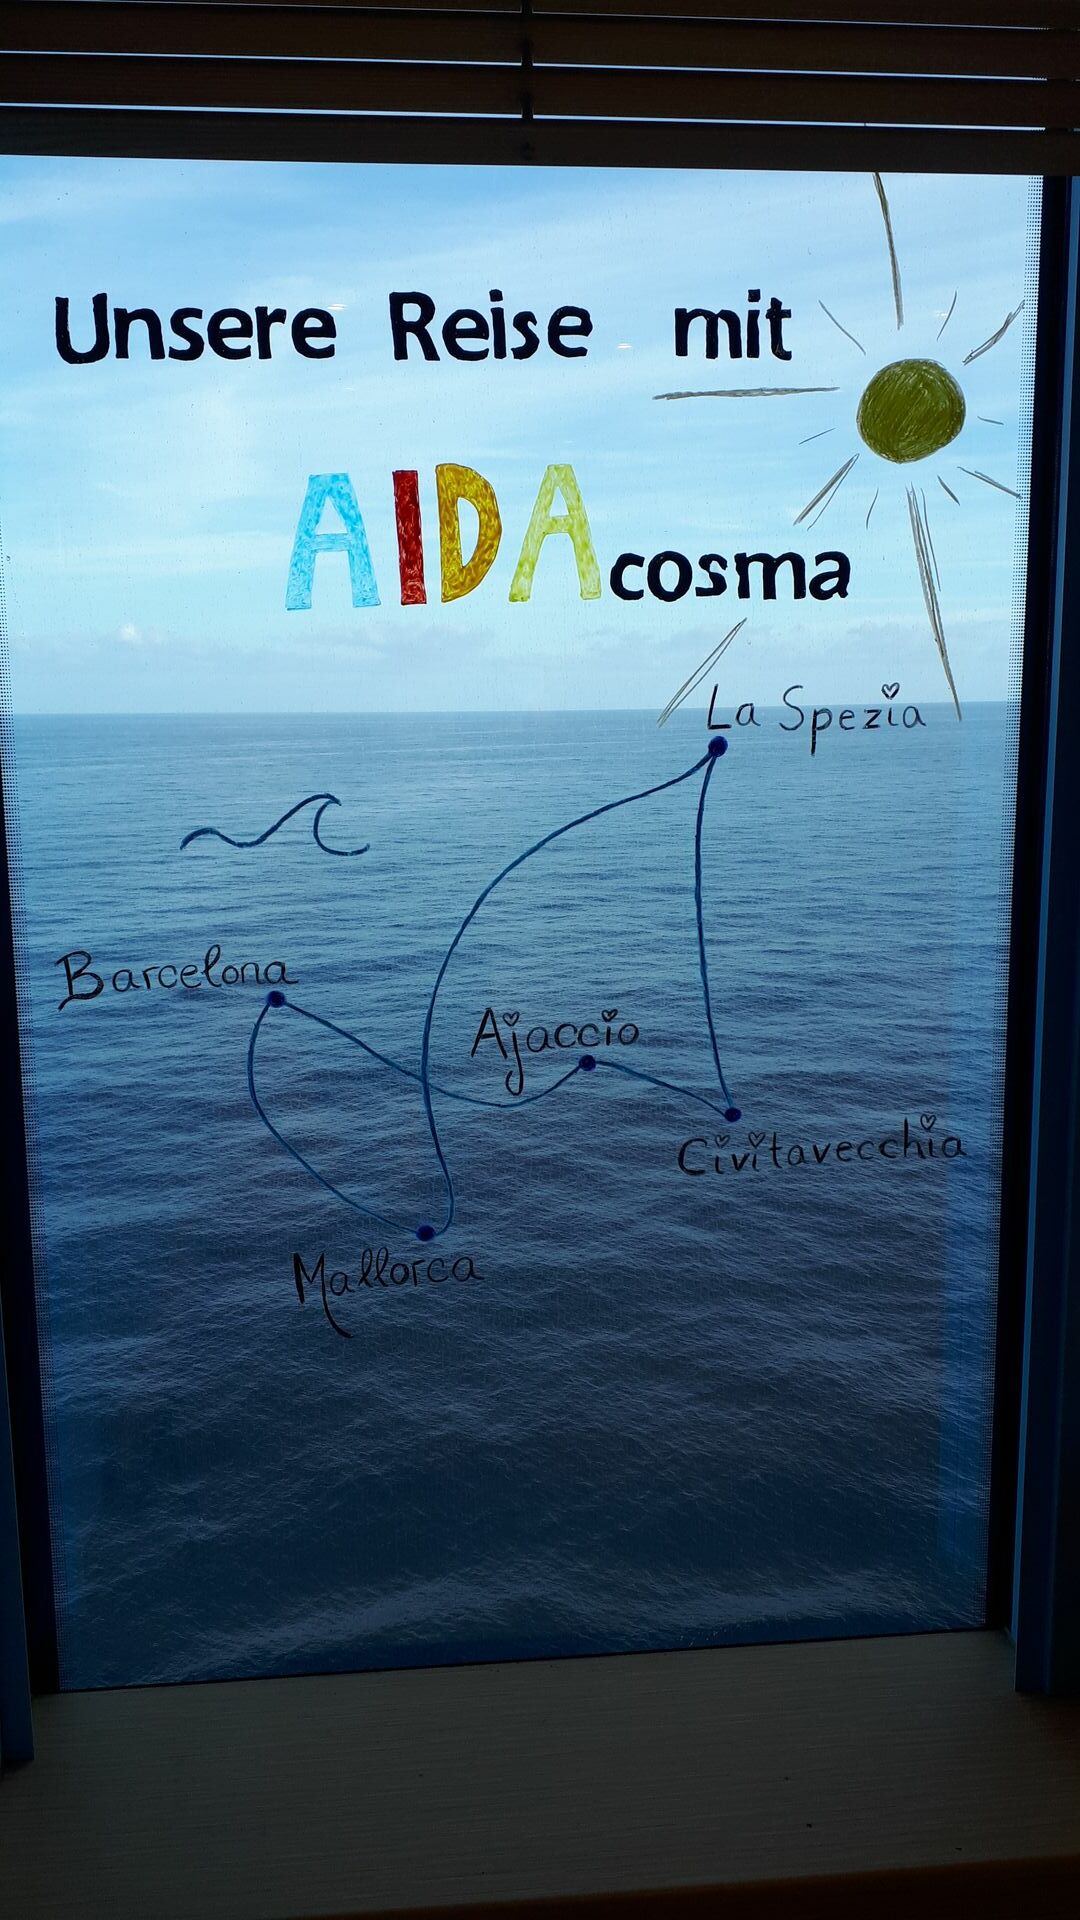 Unsere Reise mit
AIDAcosma
La Spezia
Barcelona
Ajaccio
Civitavecchia
Mallorca